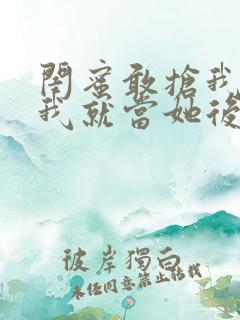 閨蜜敢搶我
我就當她後
彼岸獨白
未經同意禁止轉載